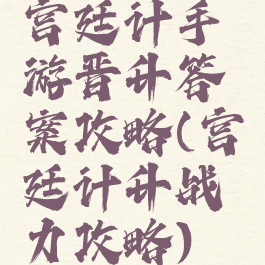 宫廷计手
游晋升答
案攻略(宫
廷计升战
力攻略)